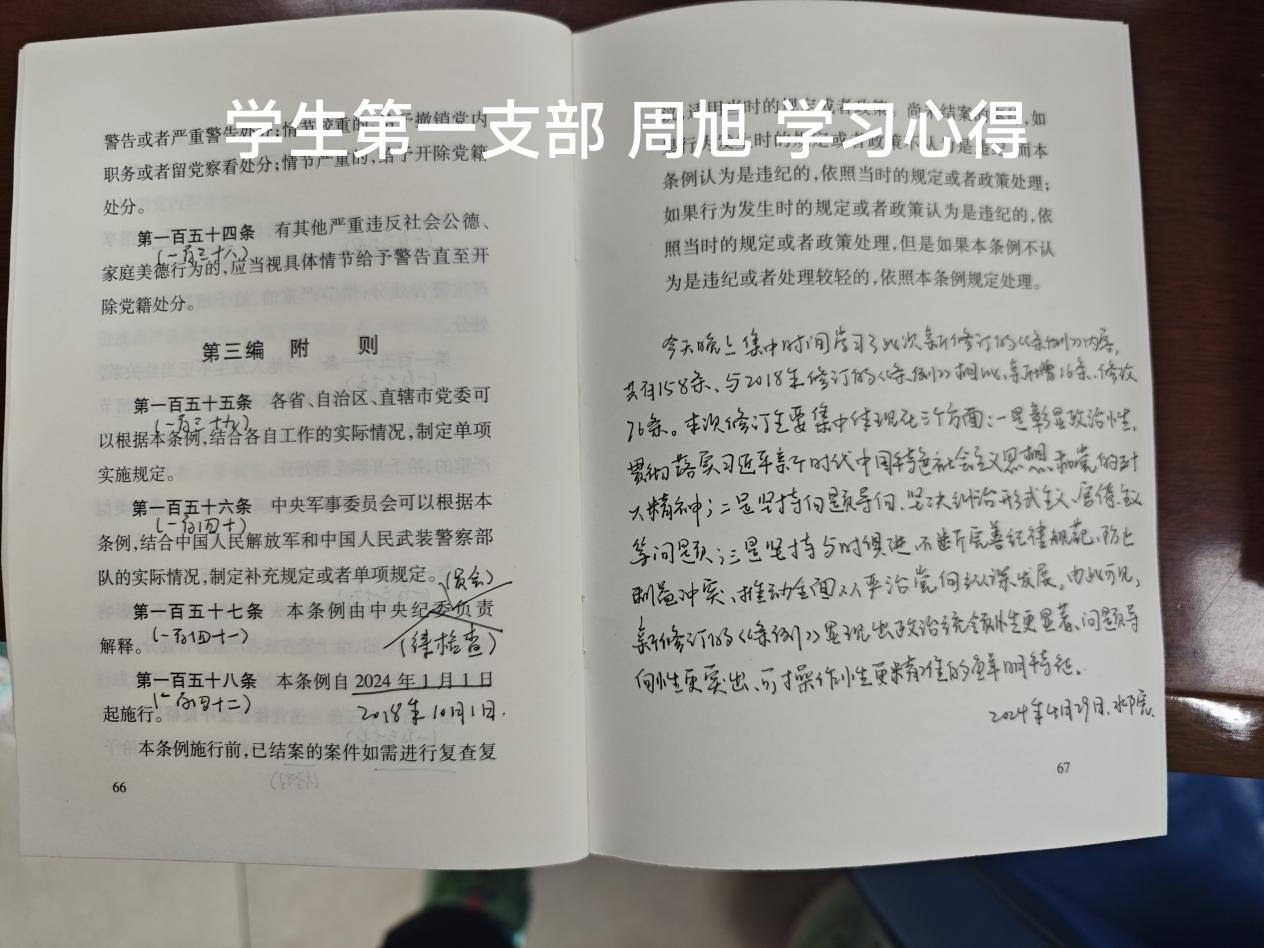 学生第一支部 周旭 学习心得
警告或者严重警告处分;情节较重的,给予撤销党内
职务或者留党察看处分;情节严重的,给予开除党籍
处分。
第一百五十四条 有其他严重违反社会公德、
(一百三十八)
家庭美德行为的,应当视具体情节给予警告直至开
除党籍处分。
第三编 附 则
第一百五十五条 各省、自治区、直辖市党委可
(一百三十九)
以根据本条例,结合各自工作的实际情况,制定单项
实施规定。
第一百五十六条 中央军事委员会可以根据本
(一百四十)
条例,结合中国人民解放军和中国人民武装警察部
队的实际情况,制定补充规定或者单项规定。
(员会)
第一百五十七条 本条例由中央纪委负责
解释。
(一百四十一)
(律检查)
第一百五十八条 本条例自 2024 年 1 月 1 日
(一百四十二)
起施行。
2018年10月1日.
本条例施行前,已结案的案件如需进行复查复
66
适用当时的规定或者政策。尚未结案的 ,如
行为发生时的规定或者政策不认为是违 而本
条例认为是违纪的,依照当时的规定或者政策处理;
如果行为发生时的规定或者政策认为是违纪的,依
照当时的规定或者政策处理,但是如果本条例不认
为是违纪或者处理较轻的,依照本条例规定处理。
今天晚上集中时间学习了此次新修订的《条例》内容,
共有158条、与2018年修订的《条例》相比,新增16条、修改
76条。本次修订主要集中体现在三个方面:一是彰显政治性,
贯彻落实习近平新时代中国特色社会主义思想和党的廿
大精神;二是坚持问题导向、坚决纠治形式主义、官僚主义
等问题;三是坚持与时俱进、不断完善纪律规范、防止
利益冲突、推动全面从严治党向纵深发展。由此可见,
新修订的《条例》显现出政治统领性更显著、问题导
向性更突出、可操作性更精准的鲜明特征.
2024年4月29日.
67